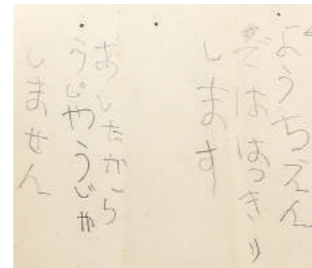 ようちえん
でははっきり
します
あしたから
うじやうじゃ
しません